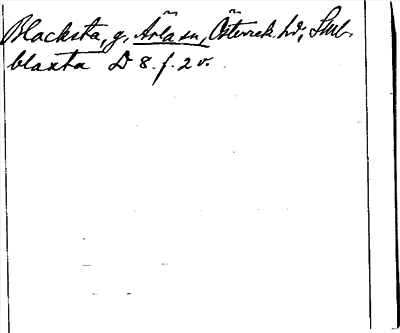 Blacksta, g, Ärla sn, Österrek. hd, Sml.
blaxta D 8. f. 2 v.